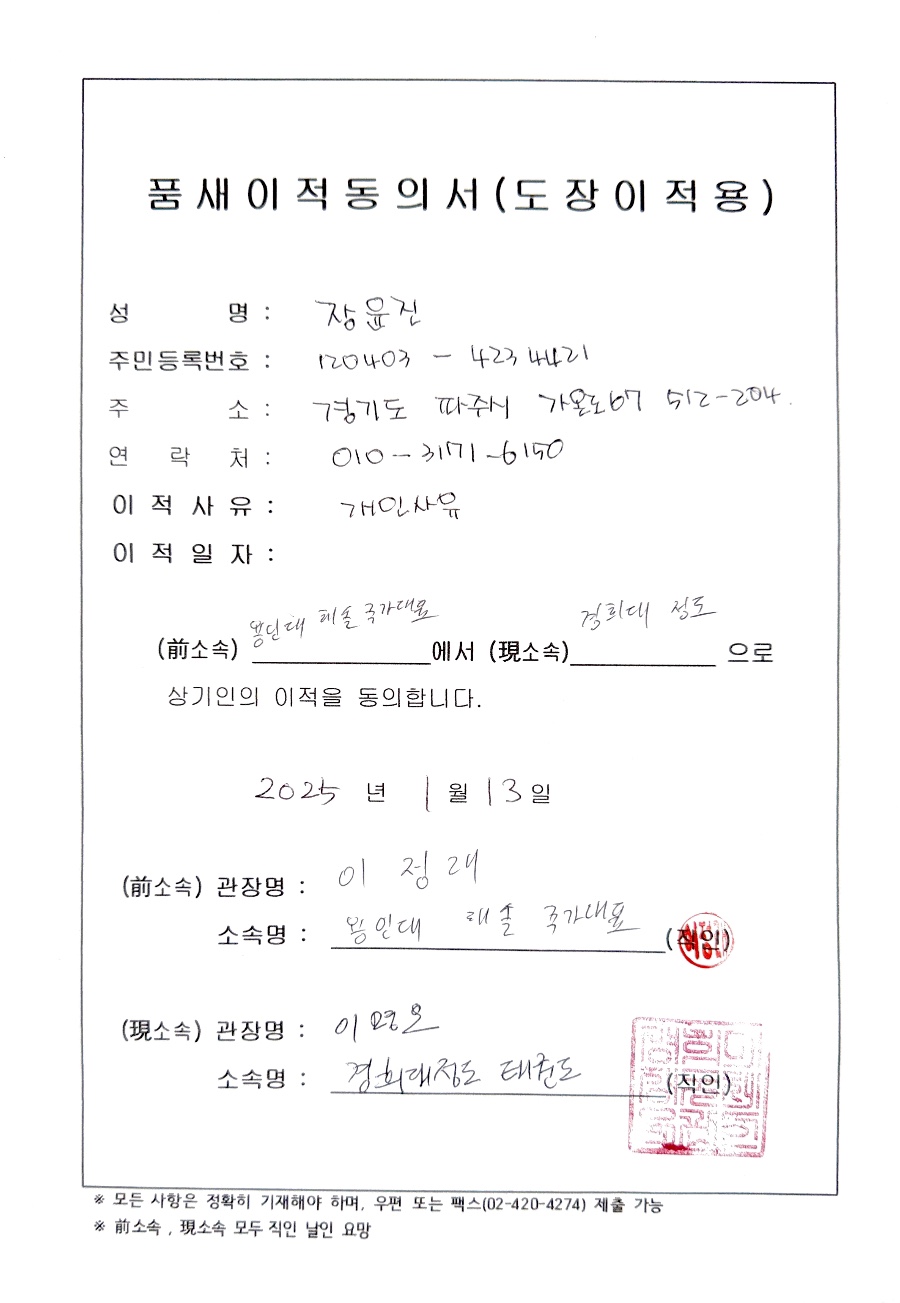 품새이적동의서(도장이적용)
성 명 : 장윤진
주민등록번호 : 120403 - 4234421
주 소 : 경기도 파주시 가온로67 512-204.
연 락 처 : 010-3171-6150
이 적 사 유 : 개인사유
이 적 일 자 :
용인대 국가대표 경희대 정도
(前소속) 에서 (現소속) 으로
상기인의 이적을 동의합니다.
2025 년 1 월 13 일
(前소속) 관장명 : 이 정래
소속명 : 용인대 국가대표 (직인)
(現소속) 관장명 : 이
소속명 : 경희대정도 태권도 (직인)
※ 모든 사항은 정확히 기재해야 하며, 우편 또는 팩스(02-420-4274) 제출 가능
※ 前소속 , 現소속 모두 직인 날인 요망